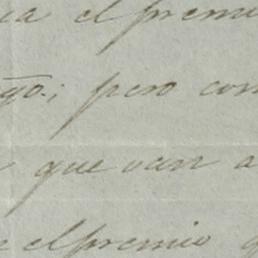 el premi
pero com
que van a
el premio